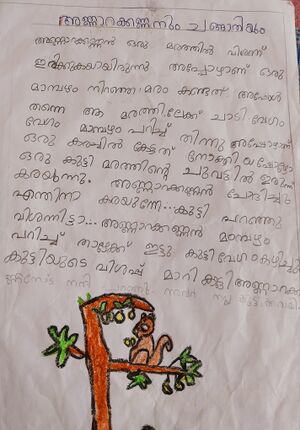 അണ്ണാറക്കണ്ണനും ചങ്ങാതിയും
അണ്ണാറക്കണ്ണൻ ഒരു മരത്തിൽ വിശന്ന്
ഇരിക്കുകയായിരുന്നു അപ്പോഴാണ് ഒരു
മാമ്പഴം നിറഞ്ഞ മരം കണ്ടത് അപ്പോൾ
തന്നെ ആ മരത്തിലേക്ക് ചാടി വേഗം
വേഗം മാമ്പഴം പറിച്ച് തിന്നു അപ്പോഴാണ്
ഒരു കരച്ചിൽ കേട്ടത് നോക്കിയപ്പോളോ
ഒരു കുട്ടി മരത്തിന്റെ ചുവട്ടിൽ ഇരുന്ന്
കരയുന്നു. അണ്ണാറക്കണ്ണൻ ചോദിച്ചു
എന്തിനാ കരയുന്നേ... കുട്ടി പറഞ്ഞു
വിശന്നിട്ടാ... അണ്ണാറക്കണ്ണൻ മാമ്പഴം
പറിച്ച് താഴേക്ക് ഇട്ടു കുട്ടി വേഗം കഴിച്ചു
കുട്ടിയുടെ വിശപ്പ് മാറി കുട്ടി അണ്ണാറ
നന്ദി